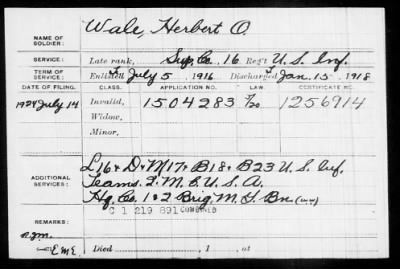 Wale, Herbert O.
NAME OF SOLDIER:
SERVICE: Late rank, Sup. Co. 16 Reg't U.S. Inf.
TERM OF SERVICE: Enlisted July 5 1916 Discharged Jan. 15, 1918
DATE OF FILING. CLASS. APPLICATION NO. LAW. CERTIFICATE NO.
1924 July 14 Invalid, 1504283 7/20 1256914
Widow,
Minor,
L 16 + D + M 17 + B 18 + B 23 U.S. Inf.
ADDITIONAL SERVICES: Teams. Q. M. C. U.S.A.
Hq. Co. 1 + 2 Brig. M. G. Bn. (WW)
C 1 219 891 COMBINED
REMARKS:
EME Died , 1 , at